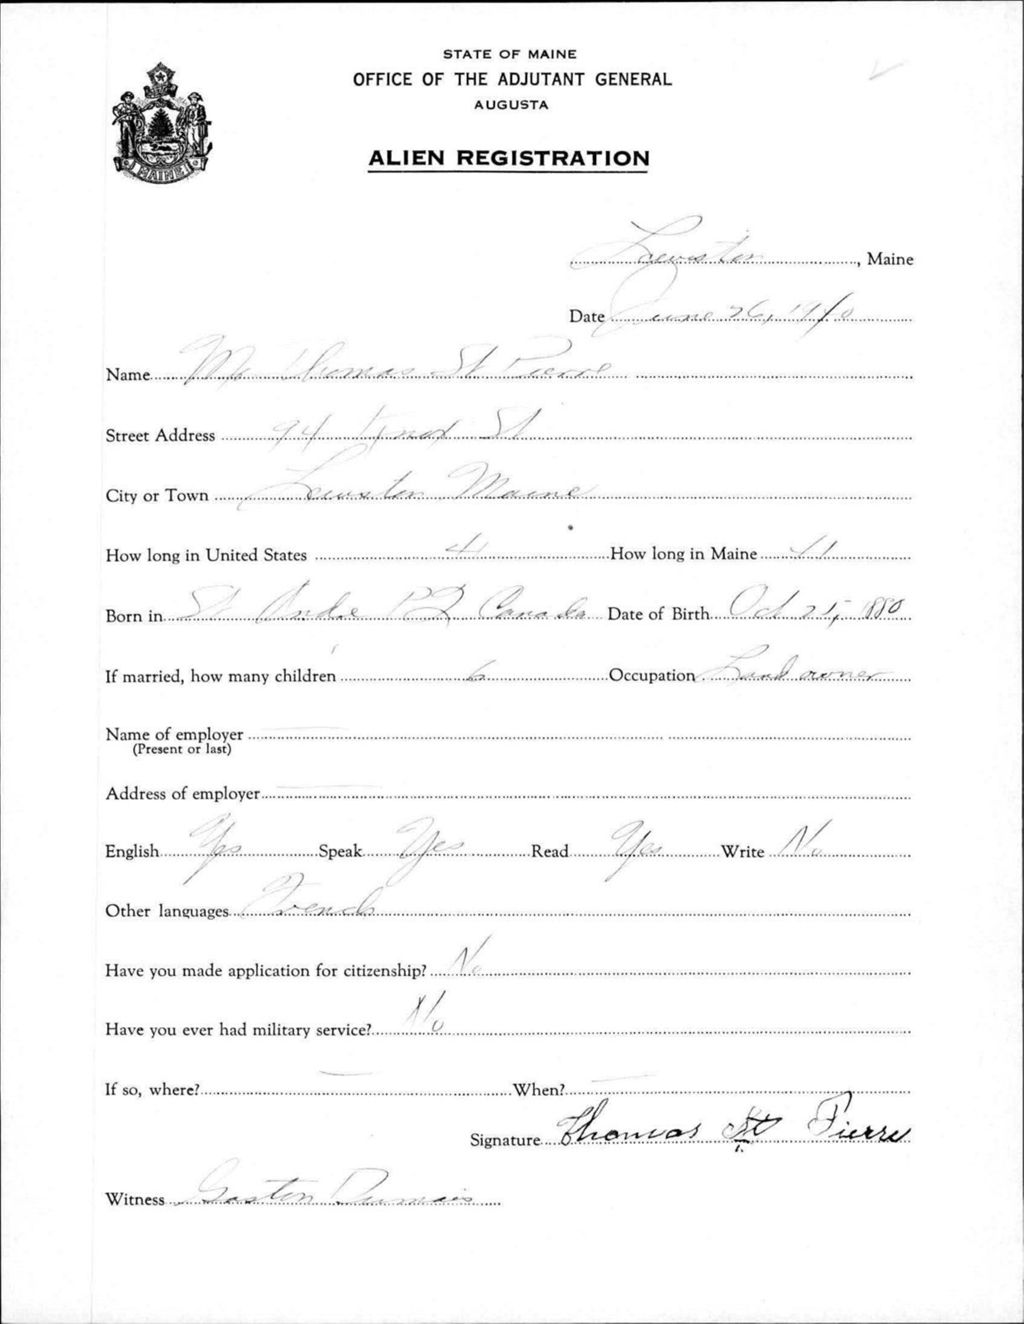 STATE OF MAINE
OFFICE OF THE ADJUTANT GENERAL
AUGUSTA
ALIEN REGISTRATION
MAINE
Lewiston, Maine
Date June 26, 1940
Name Mr Thomas St Pierre
Street Address 94 Knox St
City or Town Lewiston Maine
How long in United States How long in Maine
Born in St Andre PQ Canada Date of Birth Oct 25, 1880
If married, how many children 6 Occupation Land owner
Name of employer
(Present or last)
Address of employer
English Yes Speak Yes Read Yes Write No
Other languages French
Have you made application for citizenship? No
Have you ever had military service? No
If so, where? When?
Signature Thomas St Pierre
Witness Gaston Dumais